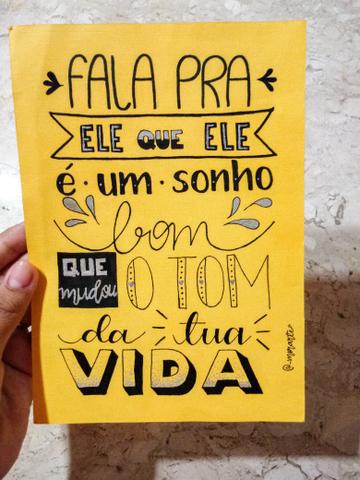 FALA PRA
ELE QUE ELE
é · um · sonho
bom
QUE mudou O TOM
da tua
VIDA